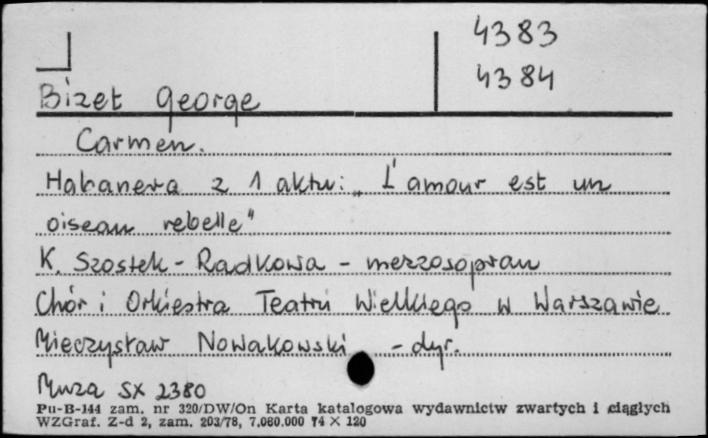 4383
4384
Bizet George
Carmen.
Habanera z 1 aktu: „L'amour est un
oiseau rebelle"
K. Szostek-Radkowa - mezzosopran
Chór i Orkiestra Teatru Wielkiego w Warszawie
Mieczysław Nowakowski - dyr.
Muza SX 2380
Pu-B-144 zam. nr 320/DW/On Karta katalogowa wydawnictw zwartych i ciągłych
WZGraf. Z-d 2, zam. 203/78, 7.060.000 74 × 120